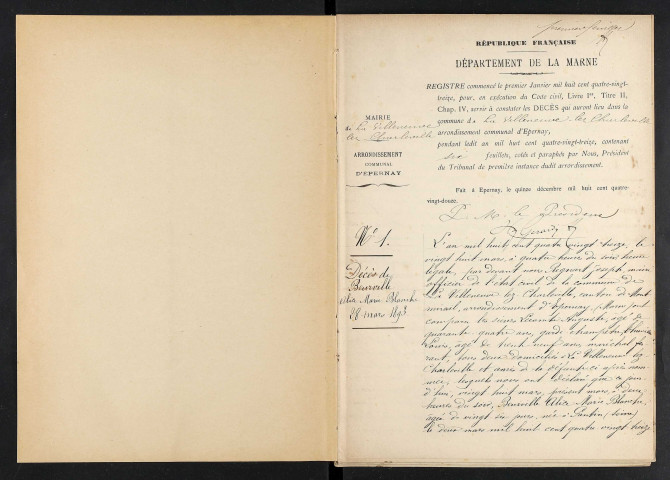 premier feuillet
RÉPUBLIQUE FRANÇAISE
DÉPARTEMENT DE LA MARNE
REGISTRE commencé le premier Janvier mil huit cent quatre-vingt-
treize, pour, en exécution du Code civil, Livre Ier, Titre II,
Chap. IV, servir à constater les DÉCÈS qui auront lieu dans la
commune de La Villeneuve-les-Charleville
arrondissement communal d'Epernay,
pendant ledit an mil huit cent quatre-vingt-treize, contenant
six feuillets, cotés et paraphés par Nous, Président
du Tribunal de première instance dudit arrondissement.
Fait à Epernay, le quinze décembre mil huit cent quatre-
vingt-douze.
P. M. le Président
MAIRIE
de La Villeneuve
lez Charleville
ARRONDISSEMENT
COMMUNAL
D'ÉPERNAY
No 1.
Décès de
Alix Marie Blanche
28 mars 1893
L'an mil huit cent quatre vingt treize, le
vingt huit mars, à quatre heures du soir, heure
légale, par devant nous Joseph, maire
officier de l'état civil de la commune de
La Villeneuve lez Charleville, canton de Mont-
mirail, arrondissement d'Epernay, sont
comparu les sieurs Auguste, âgé de
quarante quatre ans, garde champêtre,
Louis, âgé de trente neuf ans, maréchal fe-
rant, tous deux domiciliés à La Villeneuve lez
Charleville et amis de la défunte ci après nom-
mée; lesquels nous ont déclaré que ce jour-
d'hui, vingt huit mars, présent mois, à deux
heures du soir, Alix Marie Blanche,
âgée de vingt six jours, née à Pantin (Seine)
le deux mars mil huit cent quatre vingt treize